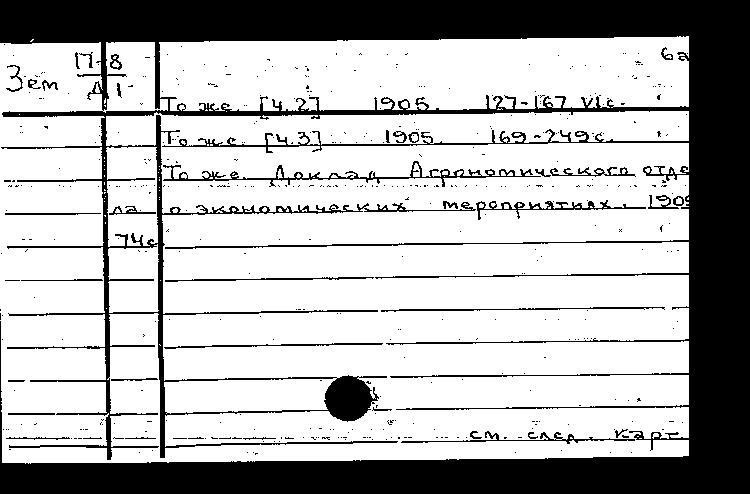 6а
Зем П-8
Д 1
То же. [Ч.2] 1905. 127-167, VI с.
То же. [Ч.3] 1905. 169-249 с.
То же. Доклад Агрономического отде
ла о экономических мероприятиях. 1905
74с
см. след. карт.